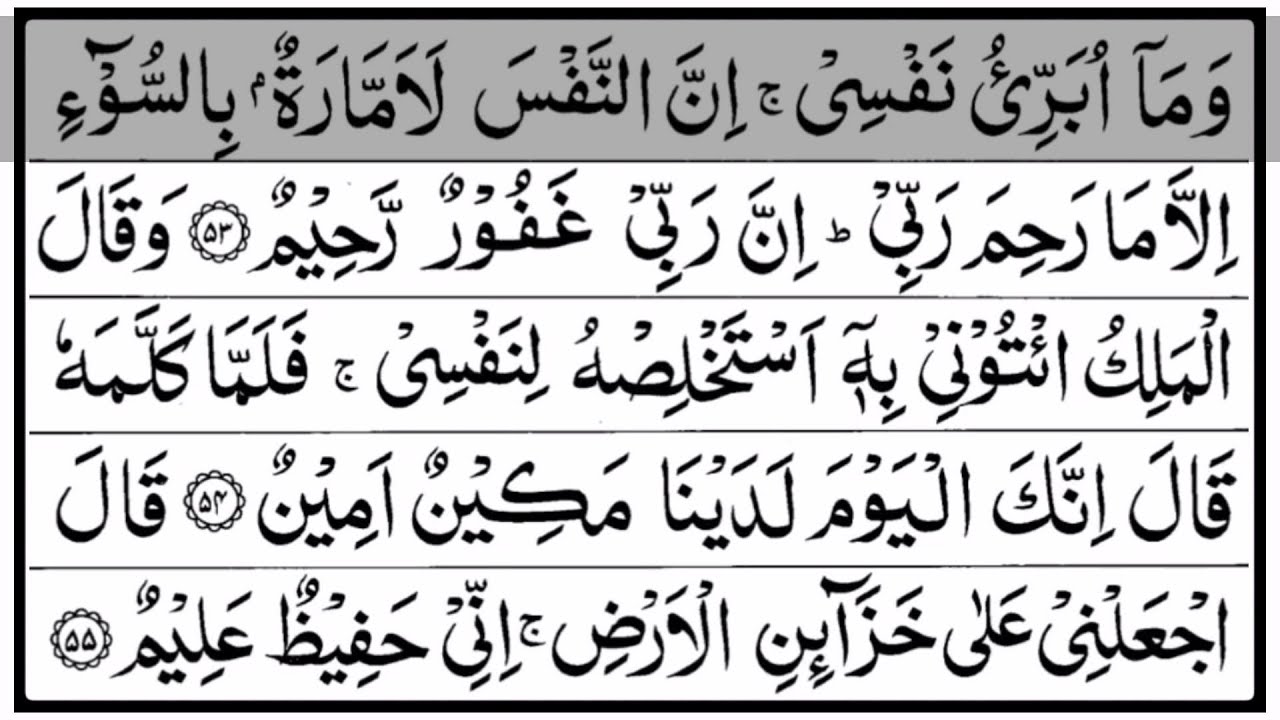 وَمَآ اُبَرِّئُ نَفْسِيْ ۚ اِنَّ النَّفْسَ لَاَمَّارَةٌۢ بِالسُّوْٓءِ
اِلَّا مَا رَحِمَ رَبِّيْ ؕ اِنَّ رَبِّيْ غَفُوْرٌ رَّحِيْمٌ ۝۵۳ وَقَالَ
الْمَلِكُ ائْتُوْنِيْ بِهٖٓ اَسْتَخْلِصْهُ لِنَفْسِيْ ۚ فَلَمَّا كَلَّمَهٗ
قَالَ اِنَّكَ الْيَوْمَ لَدَيْنَا مَكِيْنٌ اَمِيْنٌ ۝۵۴ قَالَ
اجْعَلْنِيْ عَلٰى خَزَآئِنِ الْاَرْضِ ۚ اِنِّيْ حَفِيْظٌ عَلِيْمٌ ۝۵۵